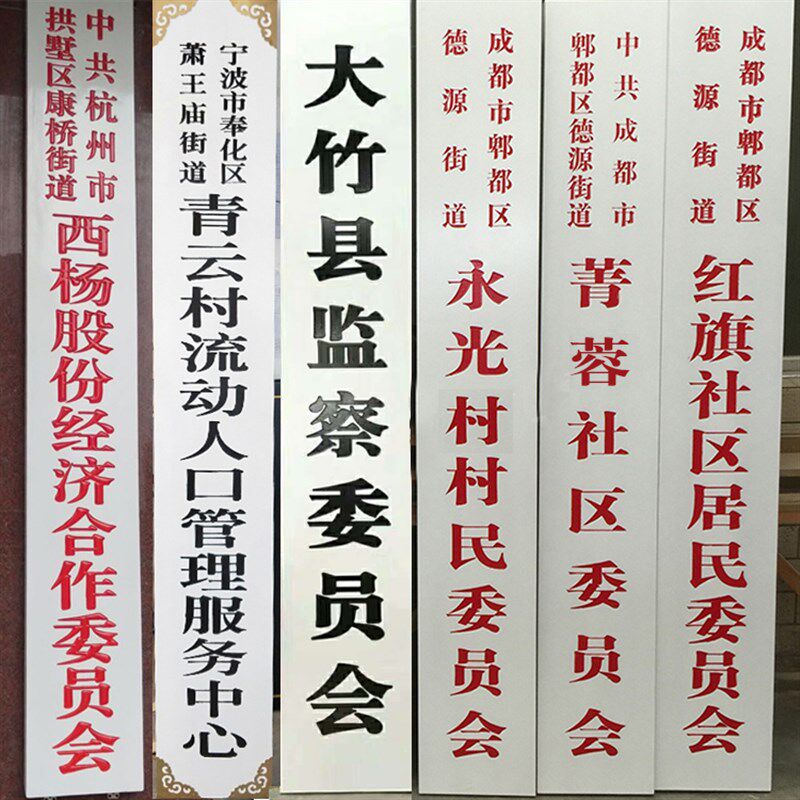 中共杭州市
拱墅区康桥街道
西杨股份经济合作委员会
宁波市奉化区
萧王庙街道
青云村流动人口管理服务中心
大竹县监察委员会
成都市郫都区
德源街道
永光村村民委员会
中共成都市
郫都区德源街道
菁蓉社区委员会
成都市郫都区
德源街道
红旗社区居民委员会